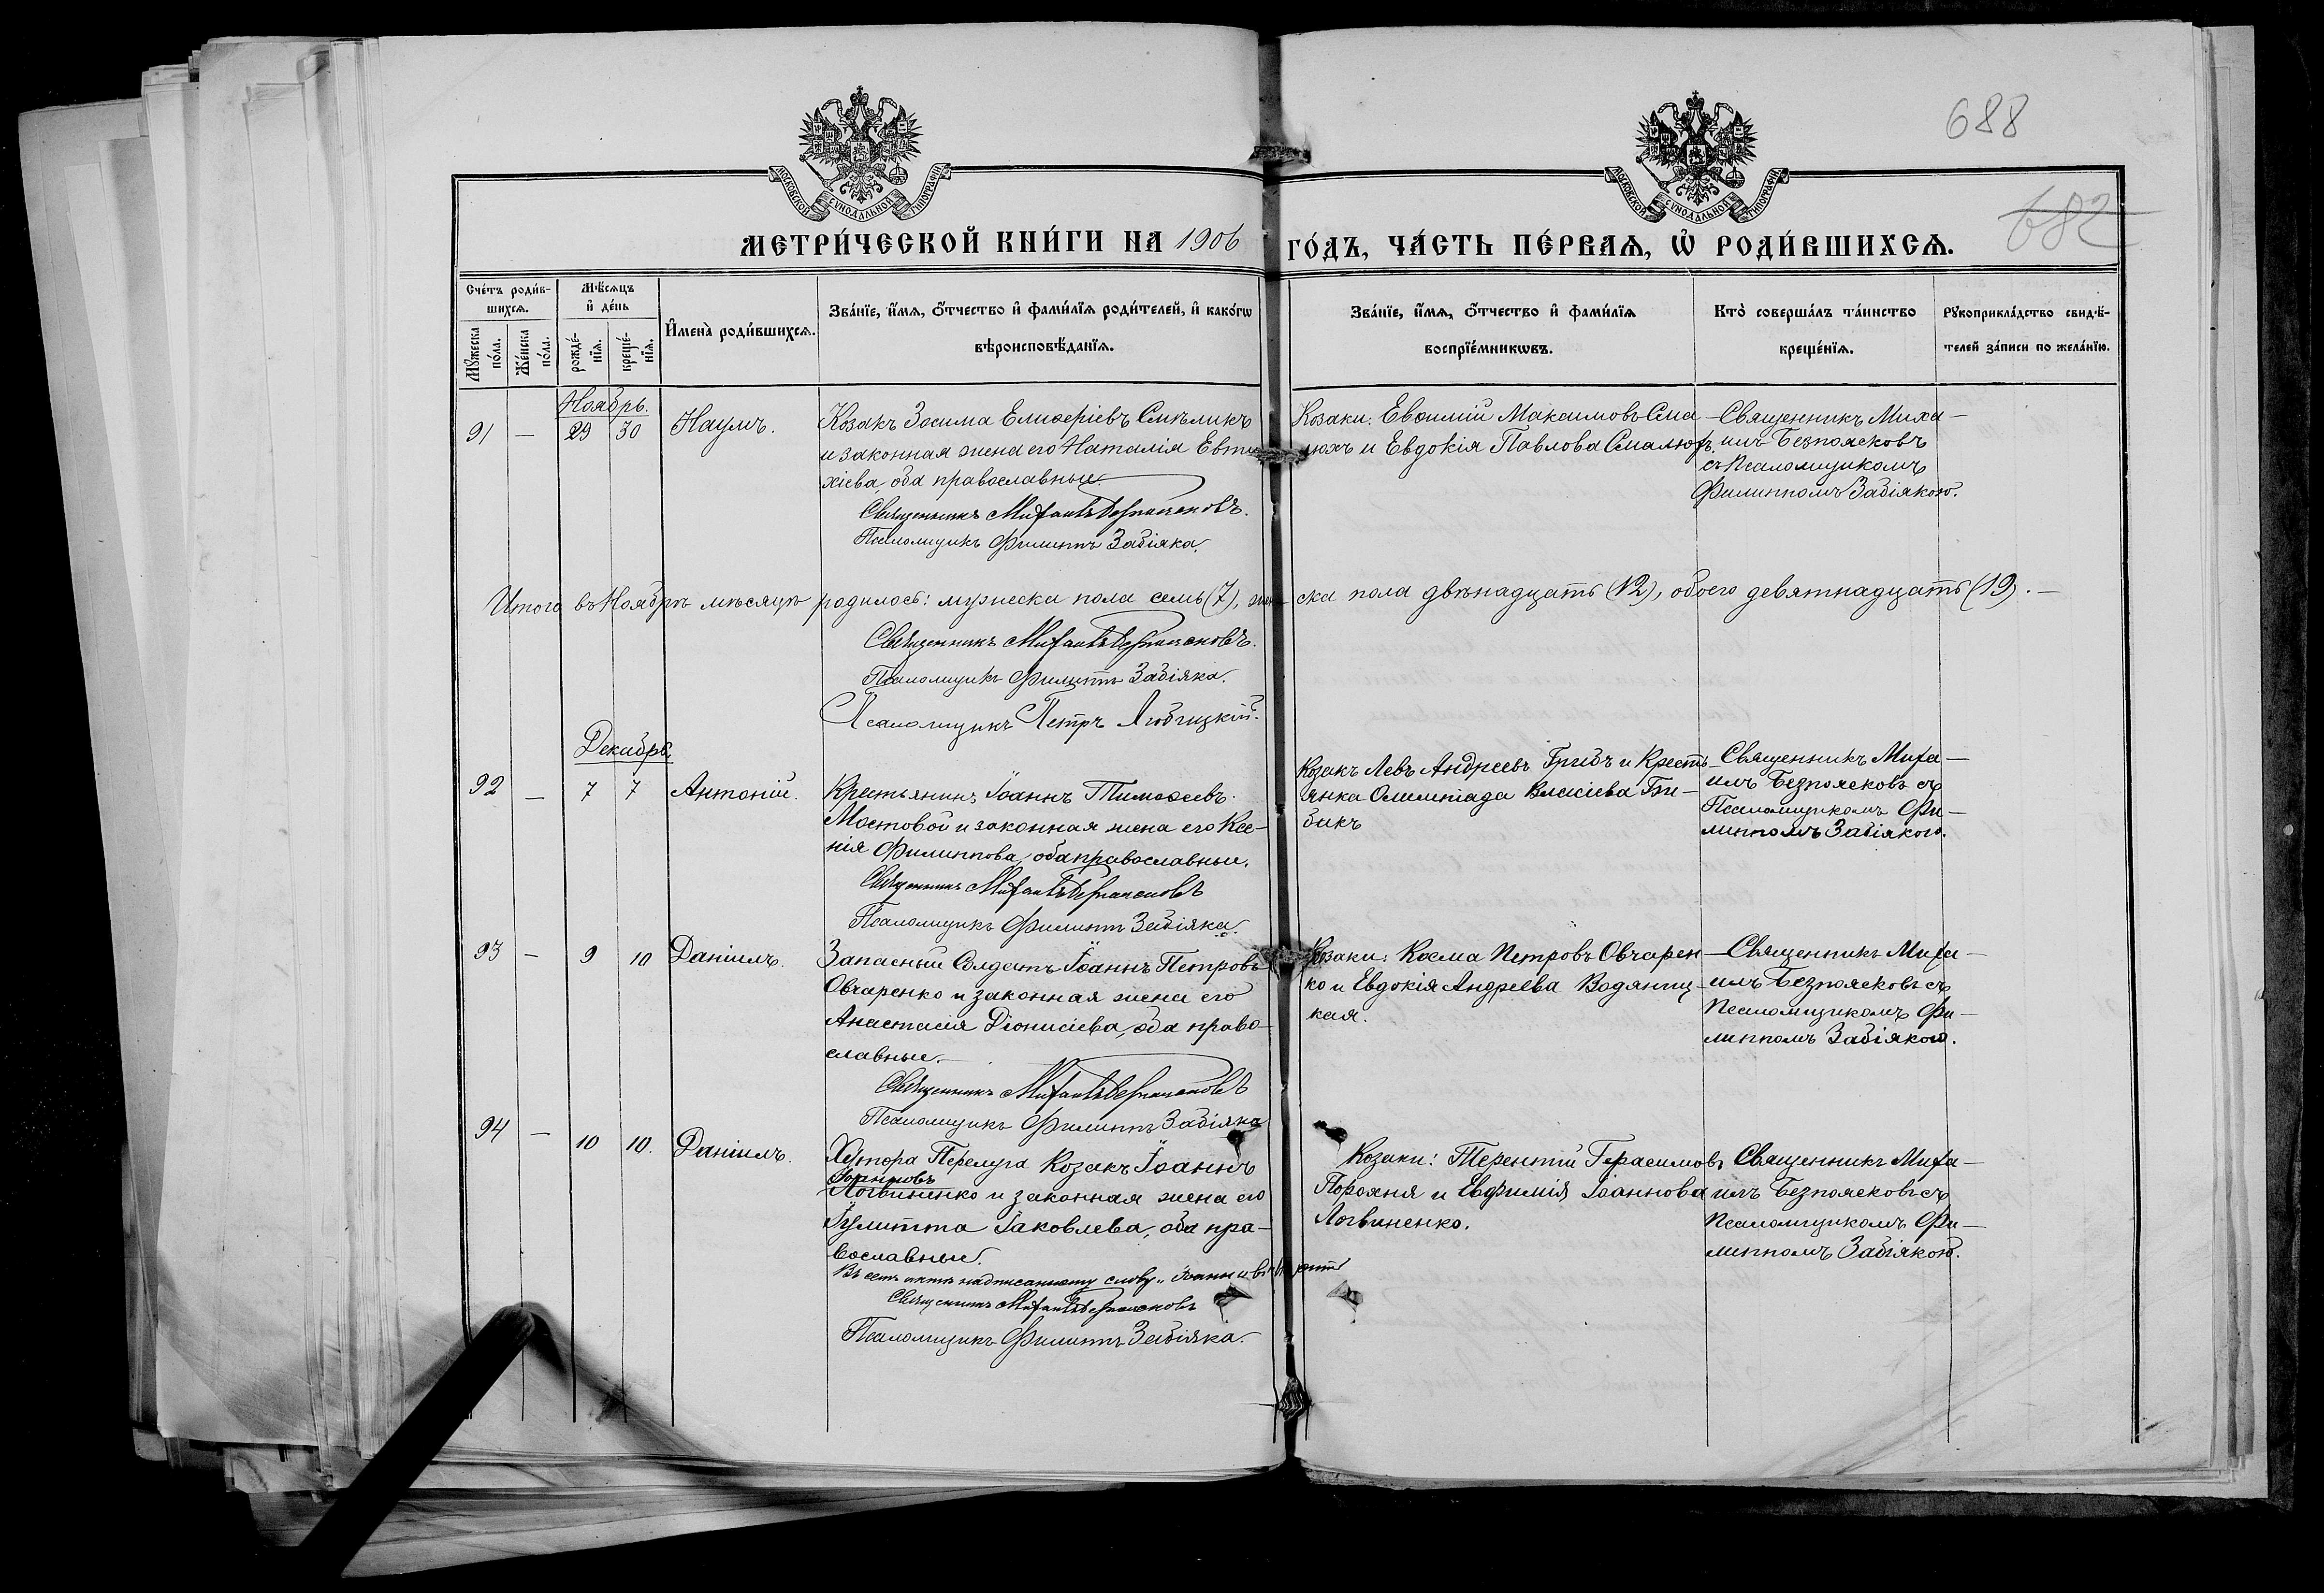 688
682
МОСКОВСКОЙ СУНОДАЛЬНОЙ ТИПОГРАФІИ
МОСКОВСКОЙ СУНОДАЛЬНОЙ ТИПОГРАФІИ
МЕТРИ́ЧЕСКОЙ КНИ́ГИ НА 1906 ГО́ДЪ, ЧА́СТЬ ПЕ́РВАѦ, Ѡ҆ РОДИ́ВШИХСѦ.
Сче́тъ роди́в-
шихсѧ.
Мꙋ́жеска
по́ла.
Же́нска
по́ла.
Мѣ́сѧцъ
и҆ де́нь
рожде́-
нїѧ.
креще́-
нїѧ.
И҆мена̀ роди́вшихсѧ.
Зва́нїе, и҆́мѧ, ѻ҆́тчество и҆ фами́лїѧ роди́телей, и҆ како́гѡ
вѣроисповѣ́данїѧ.
Зва́нїе, и҆́мѧ, ѻ҆́тчество и҆ фами́лїѧ
воспрїе́мникѡвъ.
Кто̀ соверша́лъ та́инство
креще́нїѧ.
Рꙋкоприкла́дство свидѣ́-
телей за́писи по жела́нїю.
Ноябрь.
91 — 29 30 Наумъ.
Козакъ Зосима Елиѳеріевъ Смѣликъ
и законная жена его Наталія Евти
хіева, оба православные.
Священникъ Михаилъ Безпоясковъ.
Псаломщикъ Филиппъ Забіяка.
Козаки: Евѳимій Максимовъ Сма
люхъ и Евдокія Павлова Смалюхъ.
Священникъ Миха—
илъ Безпоясковъ
съ Псаломщикомъ
Филиппомъ Забіякою.
Итого въ Ноябрѣ мѣсяцѣ родилось: мужеска пола семь (7), женска пола двѣнадцать (12), обоего девятнадцать (19).—
Священникъ Михаилъ Безпоясковъ.
Псаломщикъ Филиппъ Забіяка.
Псаломщикъ Петръ Любицкій.
Декабрь
92 — 7 7 Антоній.
Крестьянинъ Іоаннъ Тимоѳеевъ
Мостовой и законная жена его Ксе—
нія Филиппова, оба православные.
Священникъ Михаилъ Безпоясковъ
Псаломщикъ Филиппъ Забіяка.
Козакъ Левъ Андреевъ Грибъ и Кресть
янка Олимпіада Власіева Би—
бикъ
Священникъ Миха—
илъ Безпоясковъ съ
Псаломщикомъ Фи—
липпомъ Забіякою.
93 — 9 10 Даніилъ.
Запасный Солдатъ Іоаннъ Петровъ
Овчаренко и законная жена его
Анастасія Діонисіева, оба право—
славные.
Священникъ Михаилъ Безпоясковъ
Псаломщикъ Филиппъ Забіяка
Козаки: Косма Петровъ Овчарен
ко и Евдокія Андреева Водяниц—
кая.
Священникъ Миха—
илъ Безпоясковъ съ
Псаломщикомъ Фи—
липпомъ Забіякою.
94 — 10 10. Даніилъ.
Хутора Перелуга Козакъ Іоаннъ
Іоанновъ
Логвиненко и законная жена его
Іулитта Іаковлева, оба пра—
вославные.
Въ семъ актѣ надписанному слову „Іоанновъ“ вѣрить
Священникъ Михаилъ Безпоясковъ
Псаломщикъ Филиппъ Забіяка.
Козаки: Терентій Герасимовъ
Порохня и Евфимія Іоаннова
Логвиненко.
Священникъ Миха—
илъ Безпоясковъ съ
Псаломщикомъ Фи—
липпомъ Забіякою.